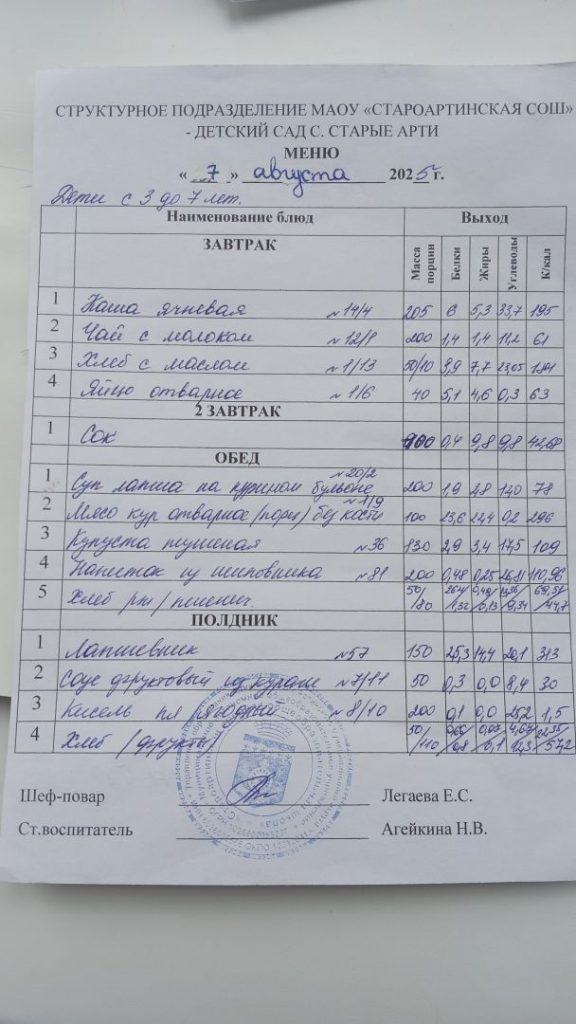 СТРУКТУРНОЕ ПОДРАЗДЕЛЕНИЕ МАОУ «СТАРОАРТИНСКАЯ СОШ»
- ДЕТСКИЙ САД С. СТАРЫЕ АРТИ
МЕНЮ
« 7 » августа 2025 г.
Дети с 3 до 7 лет.
Наименование блюд Выход
ЗАВТРАК Масса порции Белки Жиры Углеводы К/кал
1 Каша ячневая №14/4 205 6 5,3 33,7 195
2 Чай с молоком №12/9 200 1,4 1,4 11,2 61
3 Хлеб с маслом №1/13 50/10 3,9 7,7 23,05
4 Яйцо отварное №1/6 40 5,1 4,6 0,3 63
2 ЗАВТРАК
1 Сок 100 0,4 9,8 9,8 42,68
ОБЕД
1 Суп лапша на курином бульоне №20/2 200 1,9 2,8 12,0 78
2 Мясо кур отварное /порц/ без кости 100 23,6 22,4 0,2 296
3 Капуста тушеная №36 130 2,9 3,4 17,5 109
4 Напиток из шиповника №81 200 0,48 0,25 26,81 110,96
5 Хлеб рж/пшенич. 50/80
ПОЛДНИК
1 Лапшевник №57 150 25,3 14,4 20,1 313
2 Соус фруктовый из кураги №7/11 50 0,3 0,0 8,4 30
3 Кисель пл ягодный №8/10 200 0,1 0,0 25,2 1,5
4 Хлеб /фрукты 50/110
Шеф-повар Легаева Е.С.
Ст.воспитатель Агейкина Н.В.